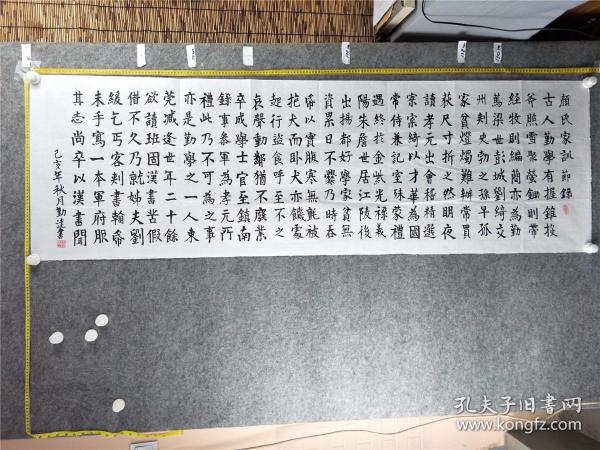 顏氏家訓節錄
古人勤學有握錐投
斧照雪聚螢鋤則帶
經牧則編簡亦為勤
篤梁世彭城劉綺交
州刺史勃之孫早孤
家貧燈燭難辦常買
荻尺寸折之然明夜
讀孝元出會稽精選
寮寀綺以才華為國
常侍兼記室殊蒙禮
遇終於金紫光祿義
陽朱詹世居江陵後
出揚都好學家貧無
資累日不爨乃時吞
帋以實腹寒無氈被
抱犬而臥犬亦饑虛
起行盜食呼至不之
哀聲動鄰猶不廢業
卒成學士官至鎮南
錄事參軍為孝元所
禮此乃不可為之事
亦是勤學之一人東
莞臧逢世年二十餘
欲讀班固漢書苦假
借不久乃就姊夫劉
緩乞丐客刺書翰帋
末手寫一本軍府服
其志尚卒以漢書聞
己亥年秋月勤達書
孔夫子旧书网
www.kongfz.com